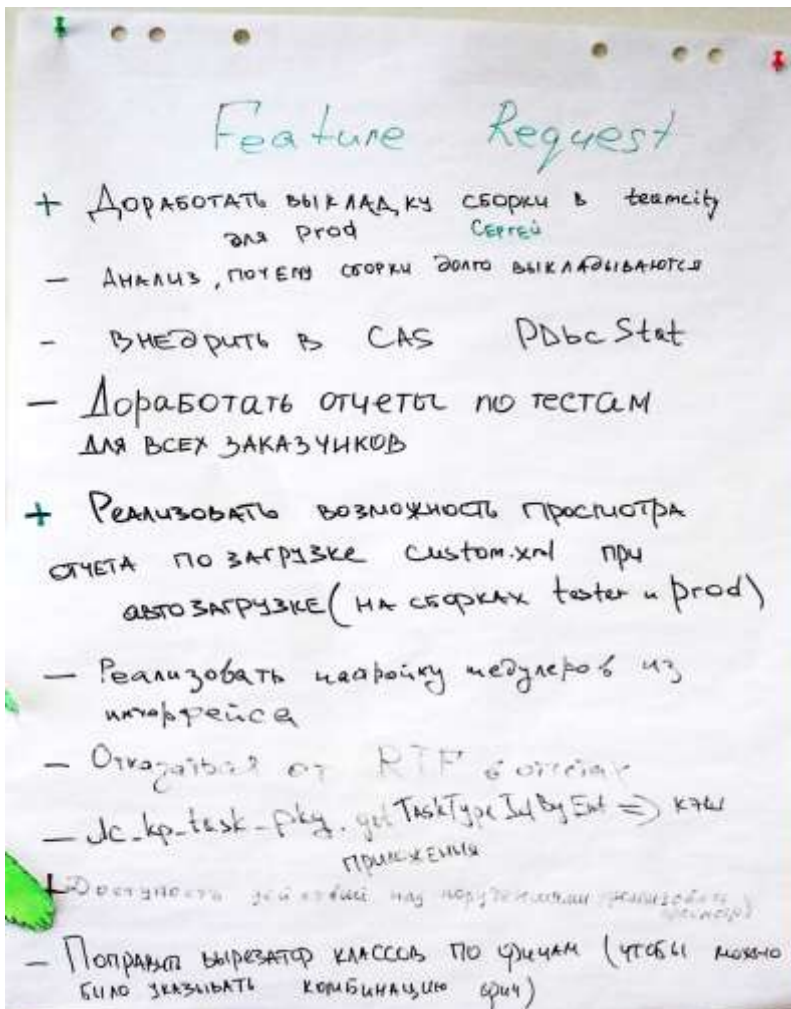 Feature Request
+ Доработать выкладку сборки в teamcity
для prod Сергей
- Анализ, почему сборки долго выкладываются
- Внедрить в CAS
- Доработать отчеты по тестам
для всех заказчиков
+ Реализовать возможность просмотра
отчета по загрузке custom.xml при
автозагрузке (на сборках tester и prod)
- Реализовать настройку шедулеров из
интерфейса
- от RTF в отчетах
- TaskType
приложения
Доступность действий над поручениями
- Поправить вырезатор классов по фичам (чтобы можно
было указывать комбинацию фич)